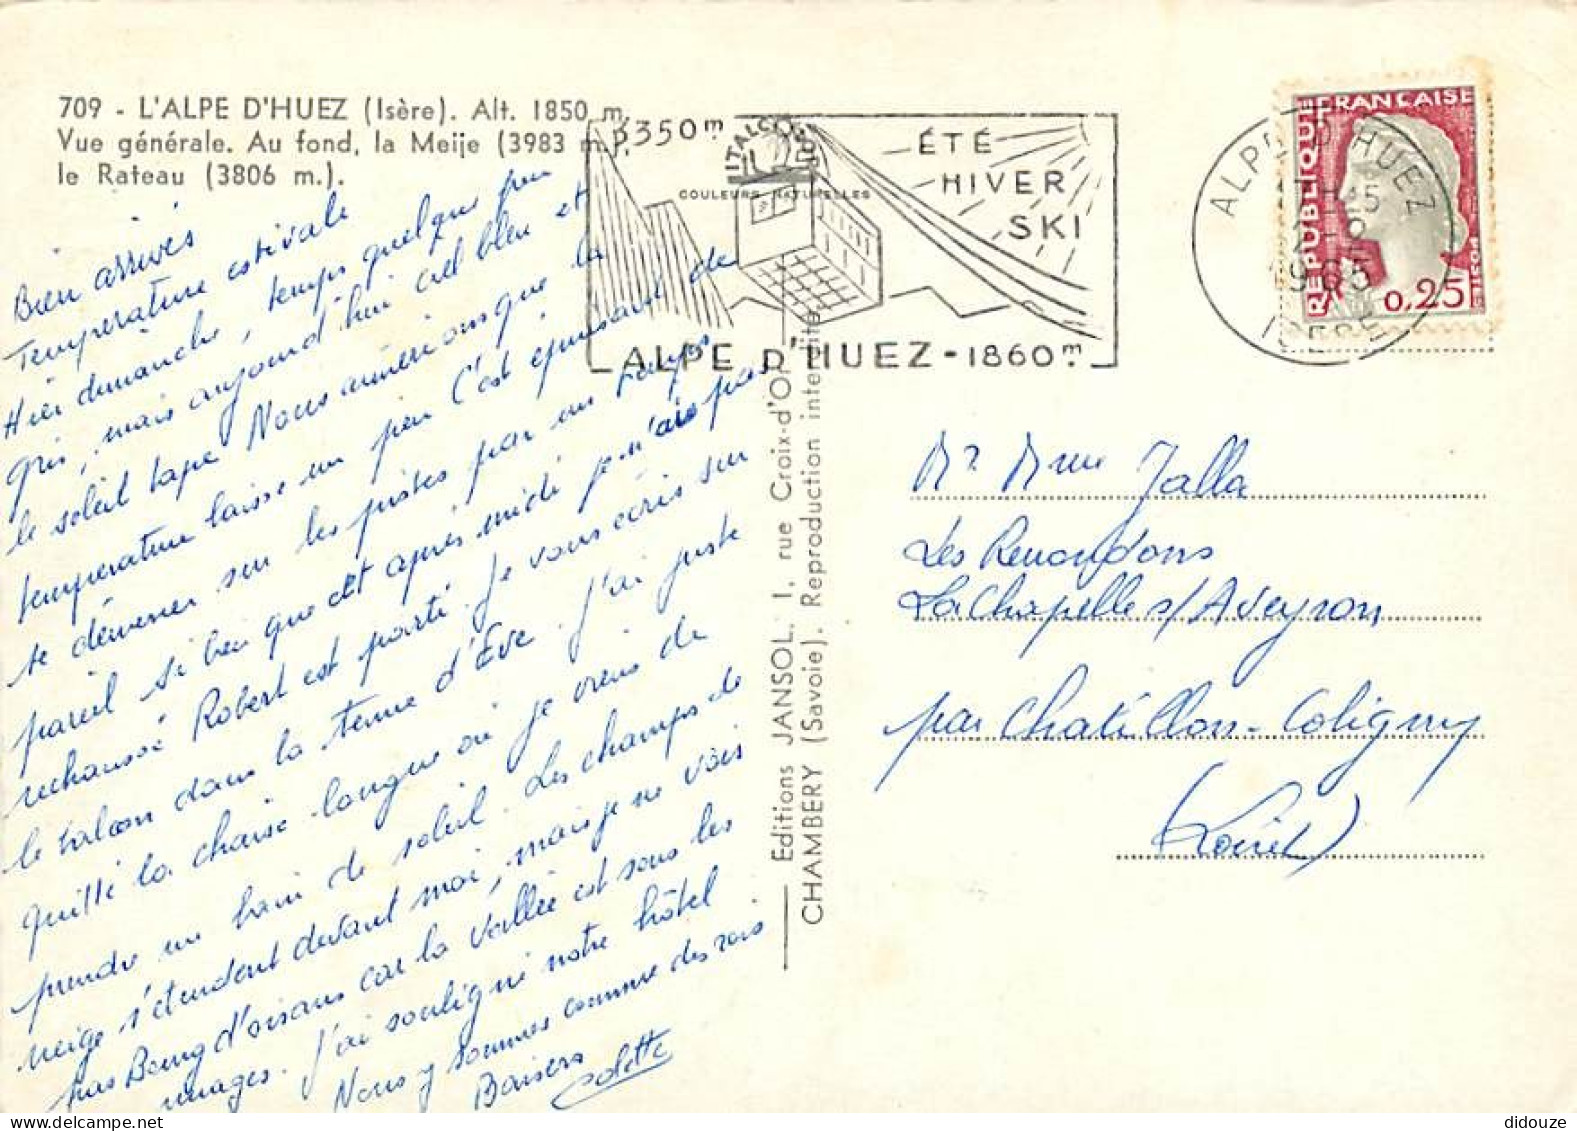 709 - L'ALPE D'HUEZ (Isère). Alt. 1850 m.
Vue générale. Au fond, la Meije (3983 m.),
le Rateau (3806 m.).
Bien arrivés
Température estivale
Hier dimanche, temps quelque peu
gris, mais aujourd'hui ciel bleu et
le soleil tape Nous aimerions que la
température baisse un peu C'est épuisant de
se démener sur les pistes par un temps
pareil si bien que cet après midi je n'ai pas
rechaussé Robert est parti. Je vous écris sur
le balcon dans la tenue d'Eve. J'ai juste
quitté la chaise-longue où je viens de
prendre un bain de soleil. Les champs de
neige s'étendent devant moi, mais je ne vois
pas Bourg d'oisans car la vallée est sous les
nuages. J'ai souligné notre hôtel
Nous y sommes comme des rois
Baisers
Colette
3350m
ITALCOLOR
COULEURS NATURELLES
ÉTÉ
HIVER
SKI
ALPE D'HUEZ - 1860m
Editions JANSOL. 1, rue Croix-d'Or
CHAMBERY (Savoie). Reproduction interdite
ALPE D'HUEZ
17H45
1965
ISERE
REPUBLIQUE FRANÇAISE
0,25
Mr Mme Jalla
Les Renondons
La Chapelle s/Aveyron
par Chatillon-Coligny
(Loiret)
didouze